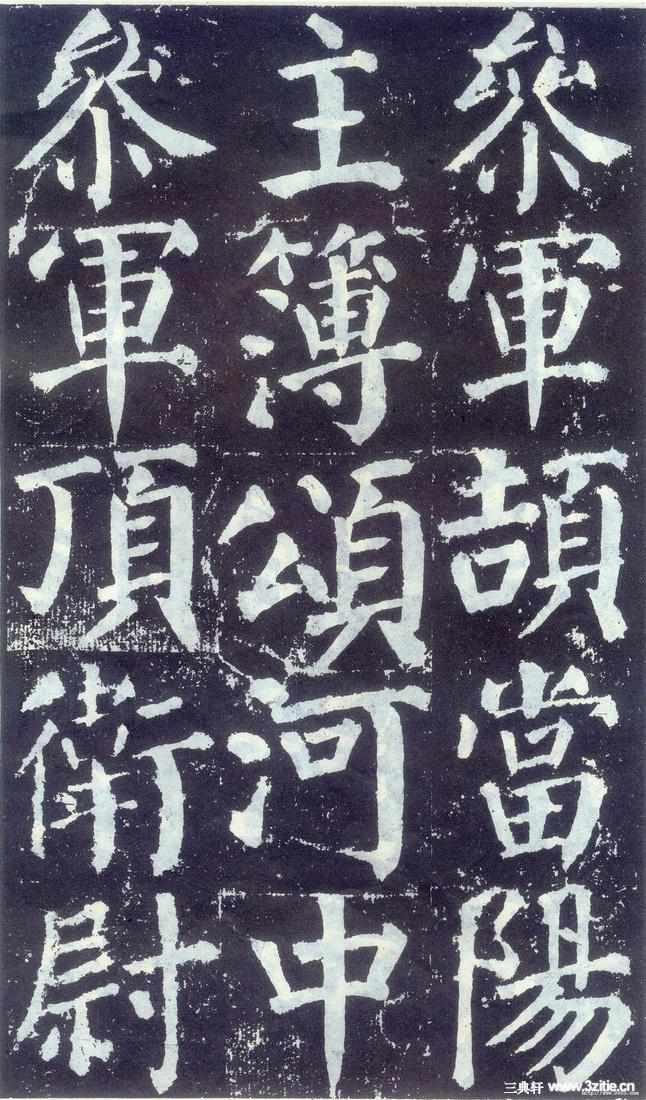 參軍頡當陽
主簿頌河中
參軍頂衛尉
三典轩 www.3zitie.cn